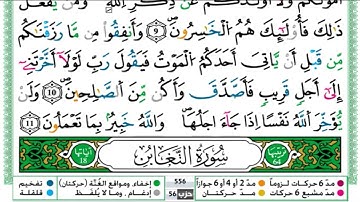 أَمْوَٰلُكُمْ وَلَآ أَوْلَٰدُكُمْ عَن ذِكْرِ ٱللَّهِ ۚ وَمَن يَفْعَلْ
ذَٰلِكَ فَأُو۟لَٰٓئِكَ هُمُ ٱلْخَٰسِرُونَ ۝٩ وَأَنفِقُوا۟ مِن مَّا رَزَقْنَٰكُم
مِّن قَبْلِ أَن يَأْتِىَ أَحَدَكُمُ ٱلْمَوْتُ فَيَقُولَ رَبِّ لَوْلَآ أَخَّرْتَنِىٓ
إِلَىٰٓ أَجَلٍ قَرِيبٍ فَأَصَّدَّقَ وَأَكُن مِّنَ ٱلصَّٰلِحِينَ ۝١٠ وَلَن
يُؤَخِّرَ ٱللَّهُ نَفْسًا إِذَا جَآءَ أَجَلُهَا ۚ وَٱللَّهُ خَبِيرٌۢ بِمَا تَعْمَلُونَ ۝١١
ترتيبها 64 سُورَةُ التَّغَابُنِ آياتها 18
556
حزب 56
مدّ 6 حركات لزوماً مدّ 2 أو 4 أو 6 جوازاً إخفاء، ومواقع الغُنَّة (حركتان) تفخيم
مدّ مشبع 6 حركات مدّ حركتان إدغام، وما لا يُلفَظ قلقلة